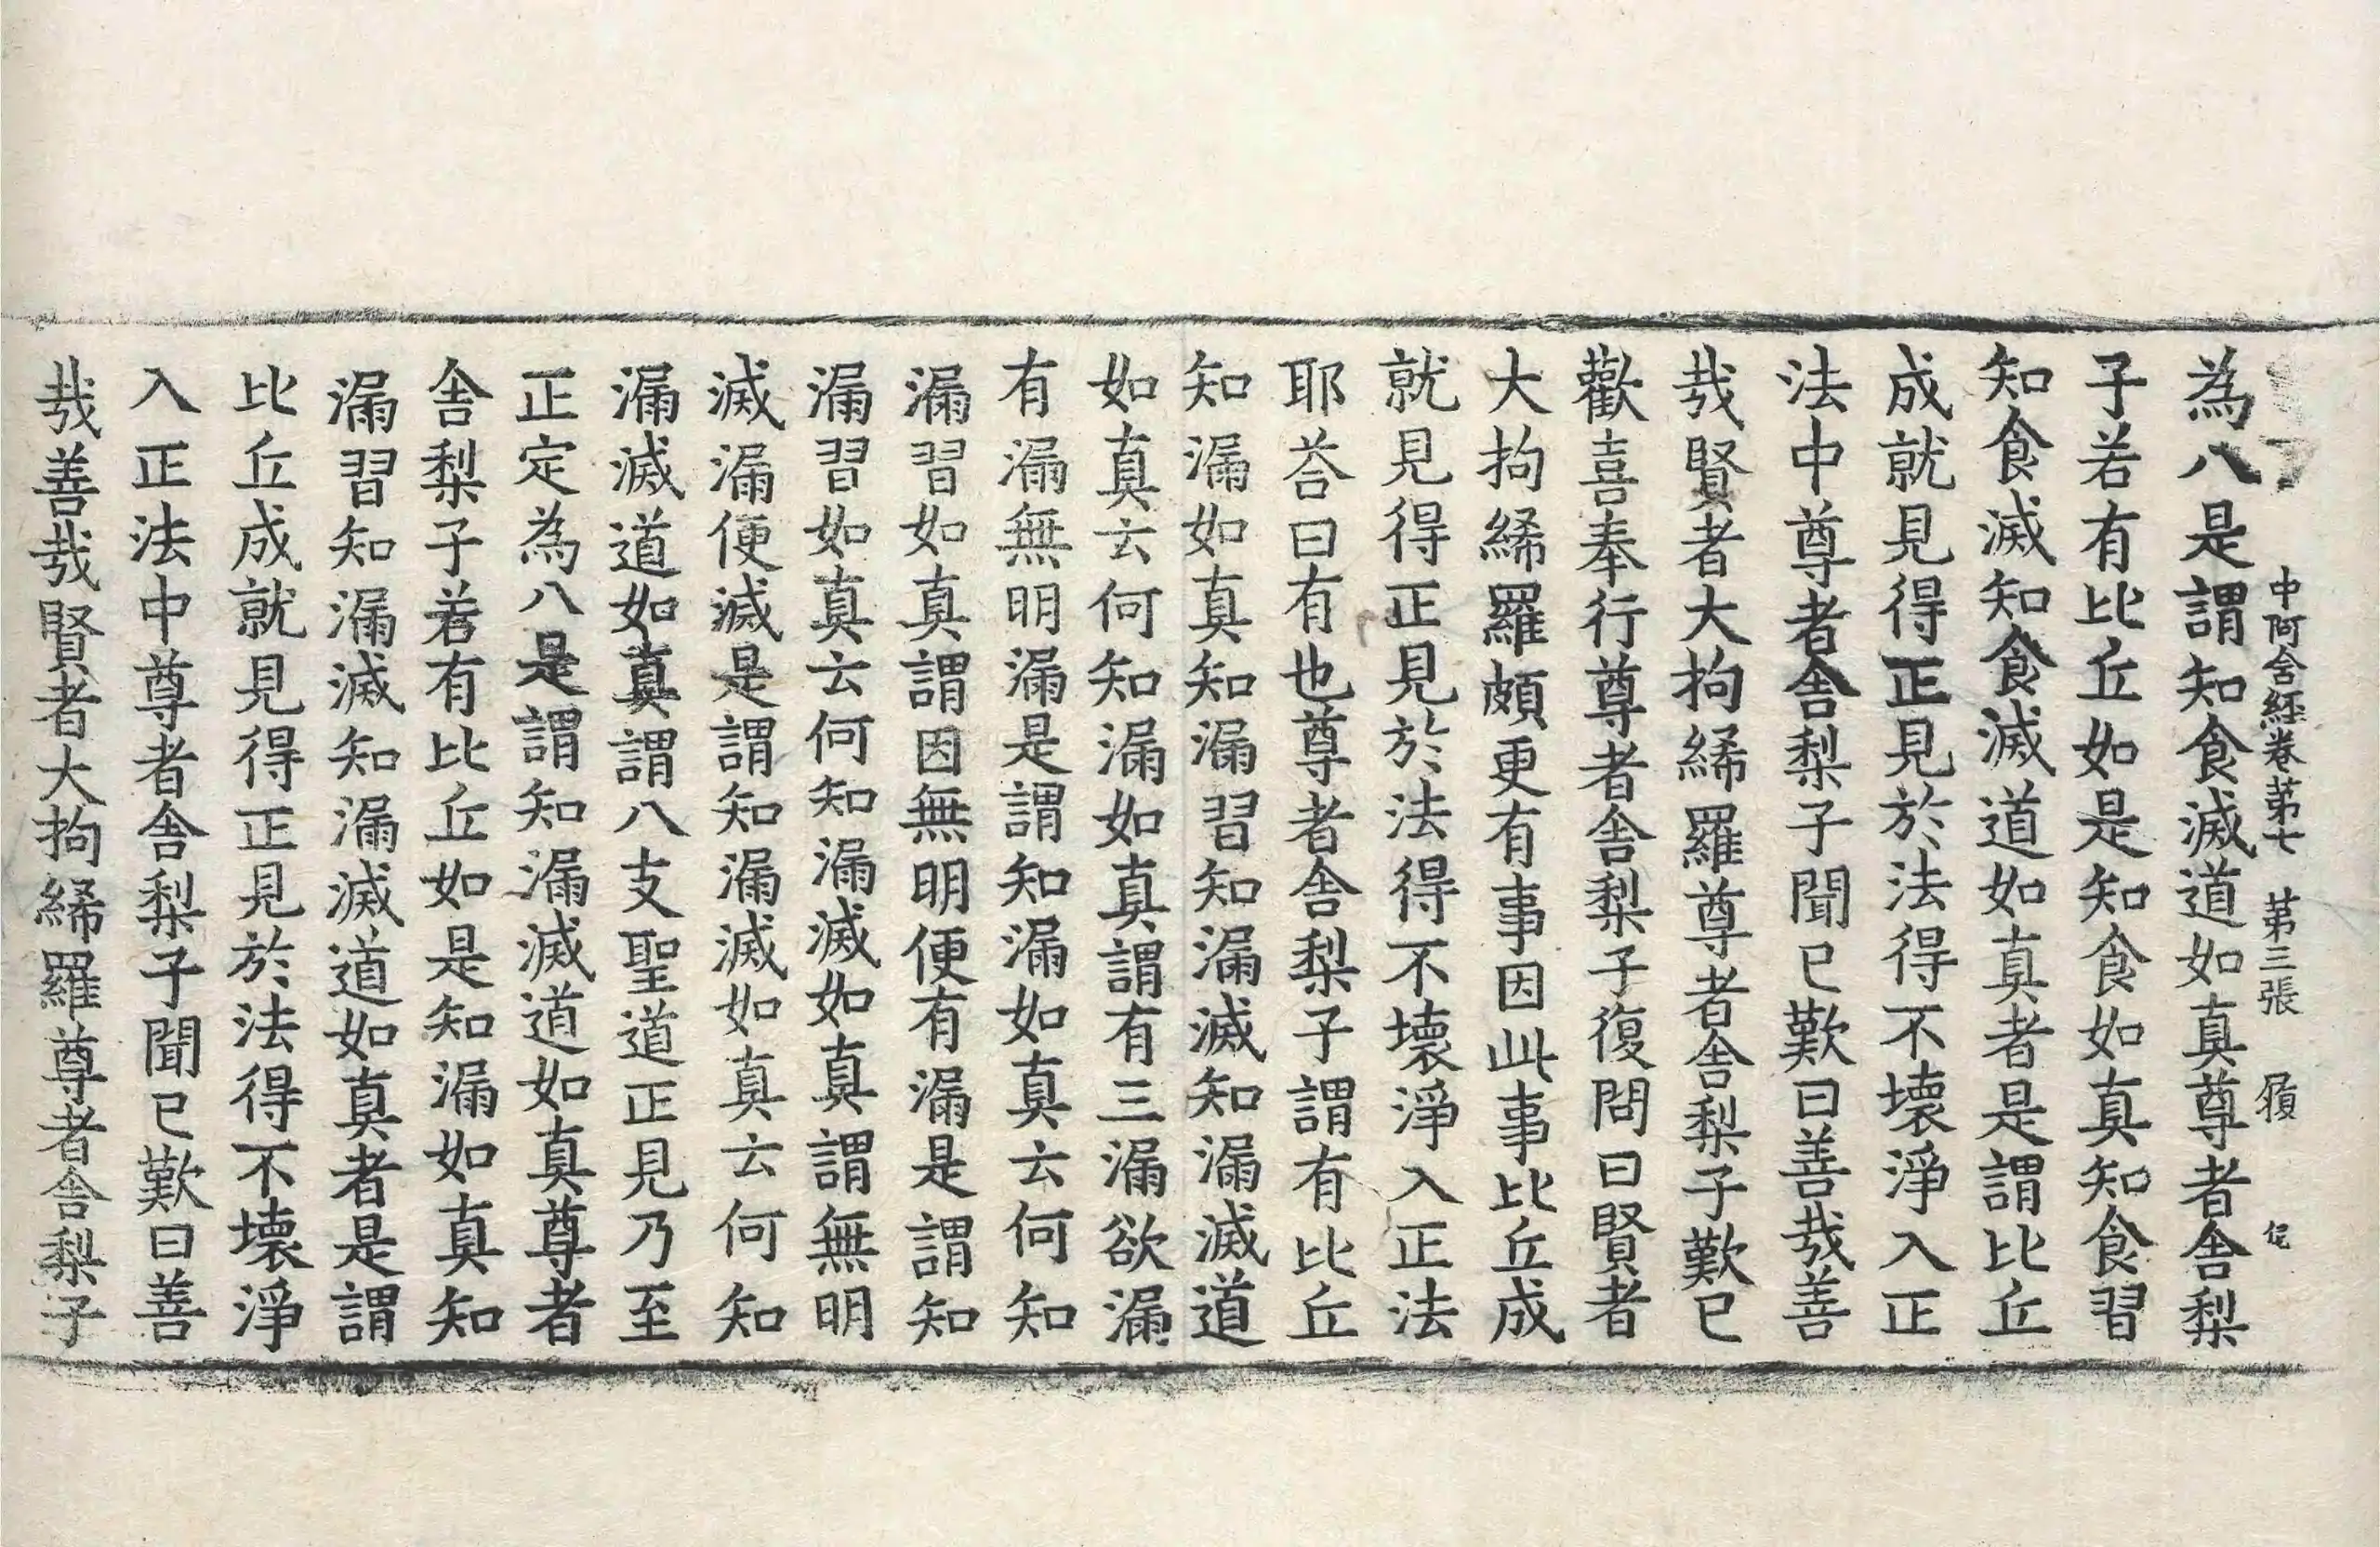 中阿含經卷第七　第三張
為八是謂知食滅道如真尊者舍梨
子若有比丘如是知食如真知食習
知食滅知食滅道如真者是謂比丘
成就見得正見於法得不壞淨入正
法中尊者舍梨子聞已歎曰善哉善
哉賢者大拘絺羅尊者舍梨子歎已
歡喜奉行尊者舍梨子復問曰賢者
大拘絺羅頗更有事因此事比丘成
就見得正見於法得不壞淨入正法
耶荅曰有也尊者舍梨子謂有比丘
知漏如真知漏習知漏滅知漏滅道
如真云何知漏如真謂有三漏欲漏
有漏無明漏是謂知漏如真云何知
漏習如真謂因無明便有漏是謂知
漏習如真云何知漏滅如真謂無明
滅漏便滅是謂知漏滅如真云何知
漏滅道如真謂八支聖道正見乃至
正定為八是謂知漏滅道如真尊者
舍梨子若有比丘如是知漏如真知
漏習知漏滅知漏滅道如真者是謂
比丘成就見得正見於法得不壞淨
入正法中尊者舍梨子聞已歎曰善
哉善哉賢者大拘絺羅尊者舍梨子